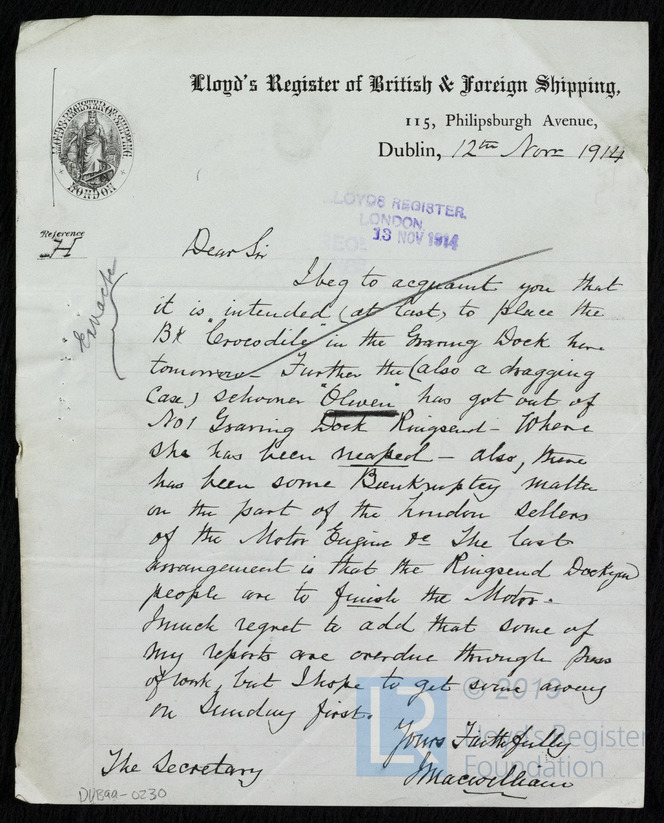 Lloyd's Register of British & Foreign Shipping,
115, Philipsburgh Avenue,
Dublin, 12th Novr 1914
LONDON
LLOYDS REGISTER,
LONDON
13 NOV 1914
Reference
H
Dear Sir
I beg to acquaint you that
it is intended (at last) to place the
Bk "Crocodile" in the Graving Dock here
tomorrow. Further the (also a dragging
Case) schooner "Olwen" has got out of
No1 Graving Dock Ringsend - Where
she has been neaped - also, there
has been some Bankruptcy matter
on the part of the London Sellers
of the Motor Engine &c The last
arrangement is that the Ringsend Dockyard
people are to finish the Motor.
I much regret to add that some of
my reports are overdue through press
of work, but I hope to get some away
on Sunday first.
Yours Faithfully
JMacwilliam
The Secretary
DUB99-0230
© 2019
Lloyd's Register
Foundation